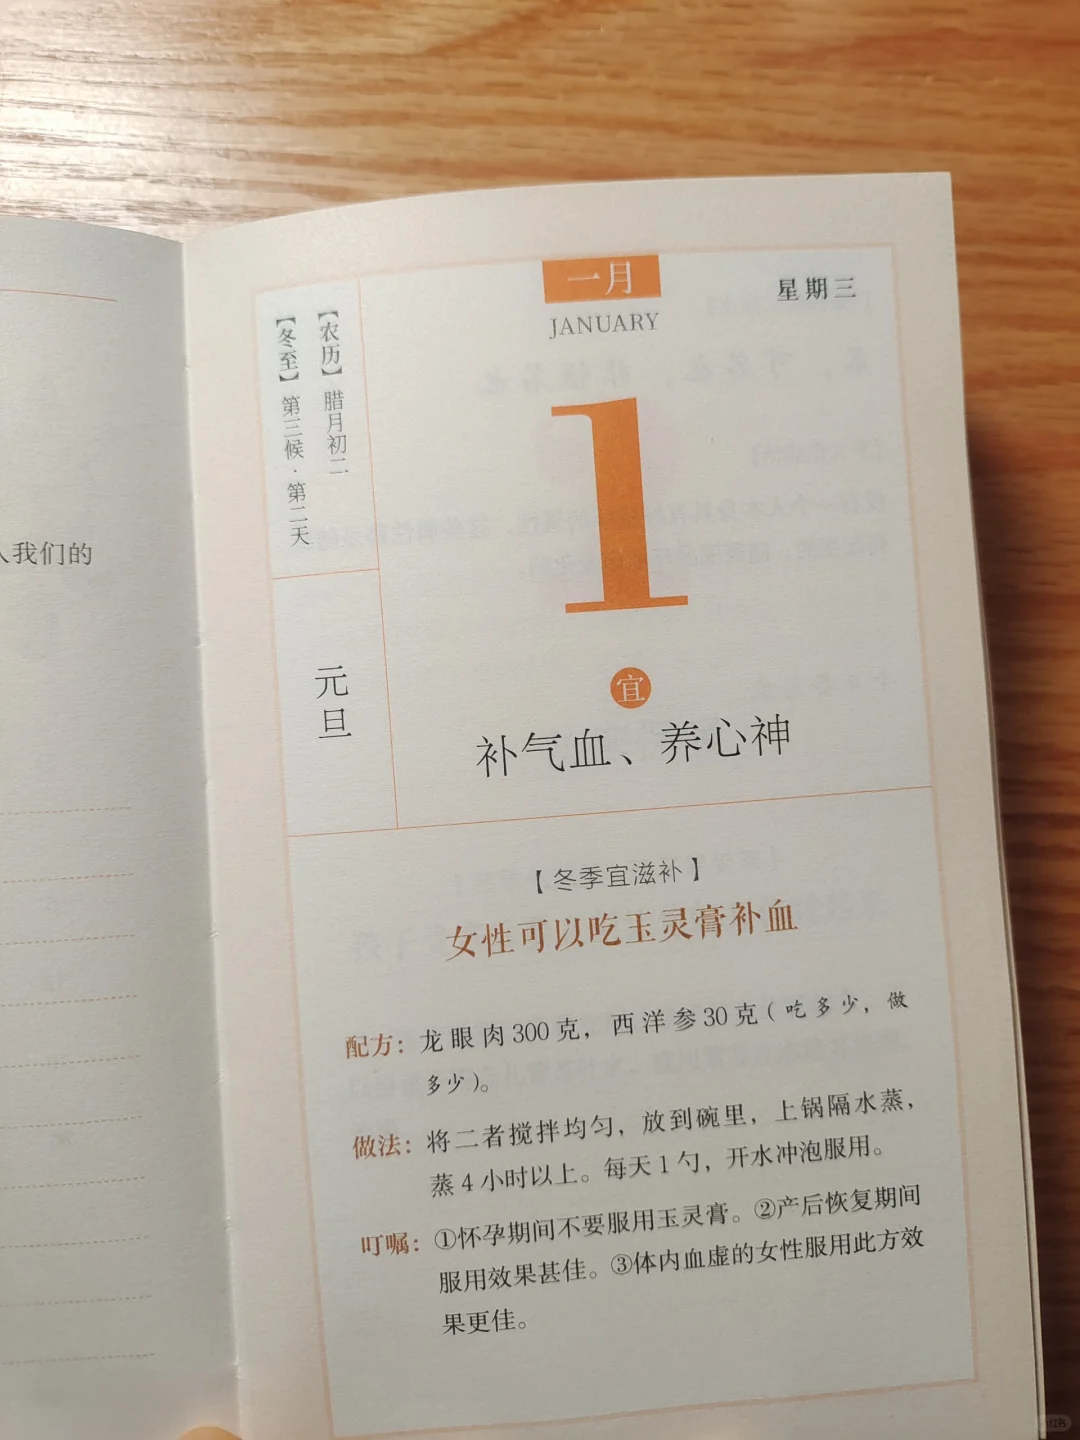 人我们的
一月
JANUARY
星期三
【农历】腊月初二
【冬至】第三候·第二天
1
元旦
宜
补气血、养心神
【冬季宜滋补】
女性可以吃玉灵膏补血
配方：龙眼肉300克，西洋参30克（吃多少，做
多少）。
做法：将二者搅拌均匀，放到碗里，上锅隔水蒸，
蒸4小时以上。每天1勺，开水冲泡服用。
叮嘱：①怀孕期间不要服用玉灵膏。②产后恢复期间
服用效果甚佳。③体内血虚的女性服用此方效
果更佳。